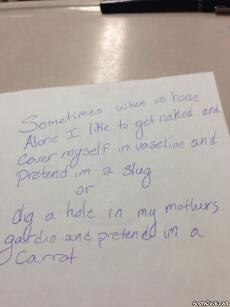 Sometimes when im home
Alone I like to get naked and
Cover myself in vaseline and
Pretend im a slug
or
dig a hole in my mothers
gardin and pretend im a
Carrot